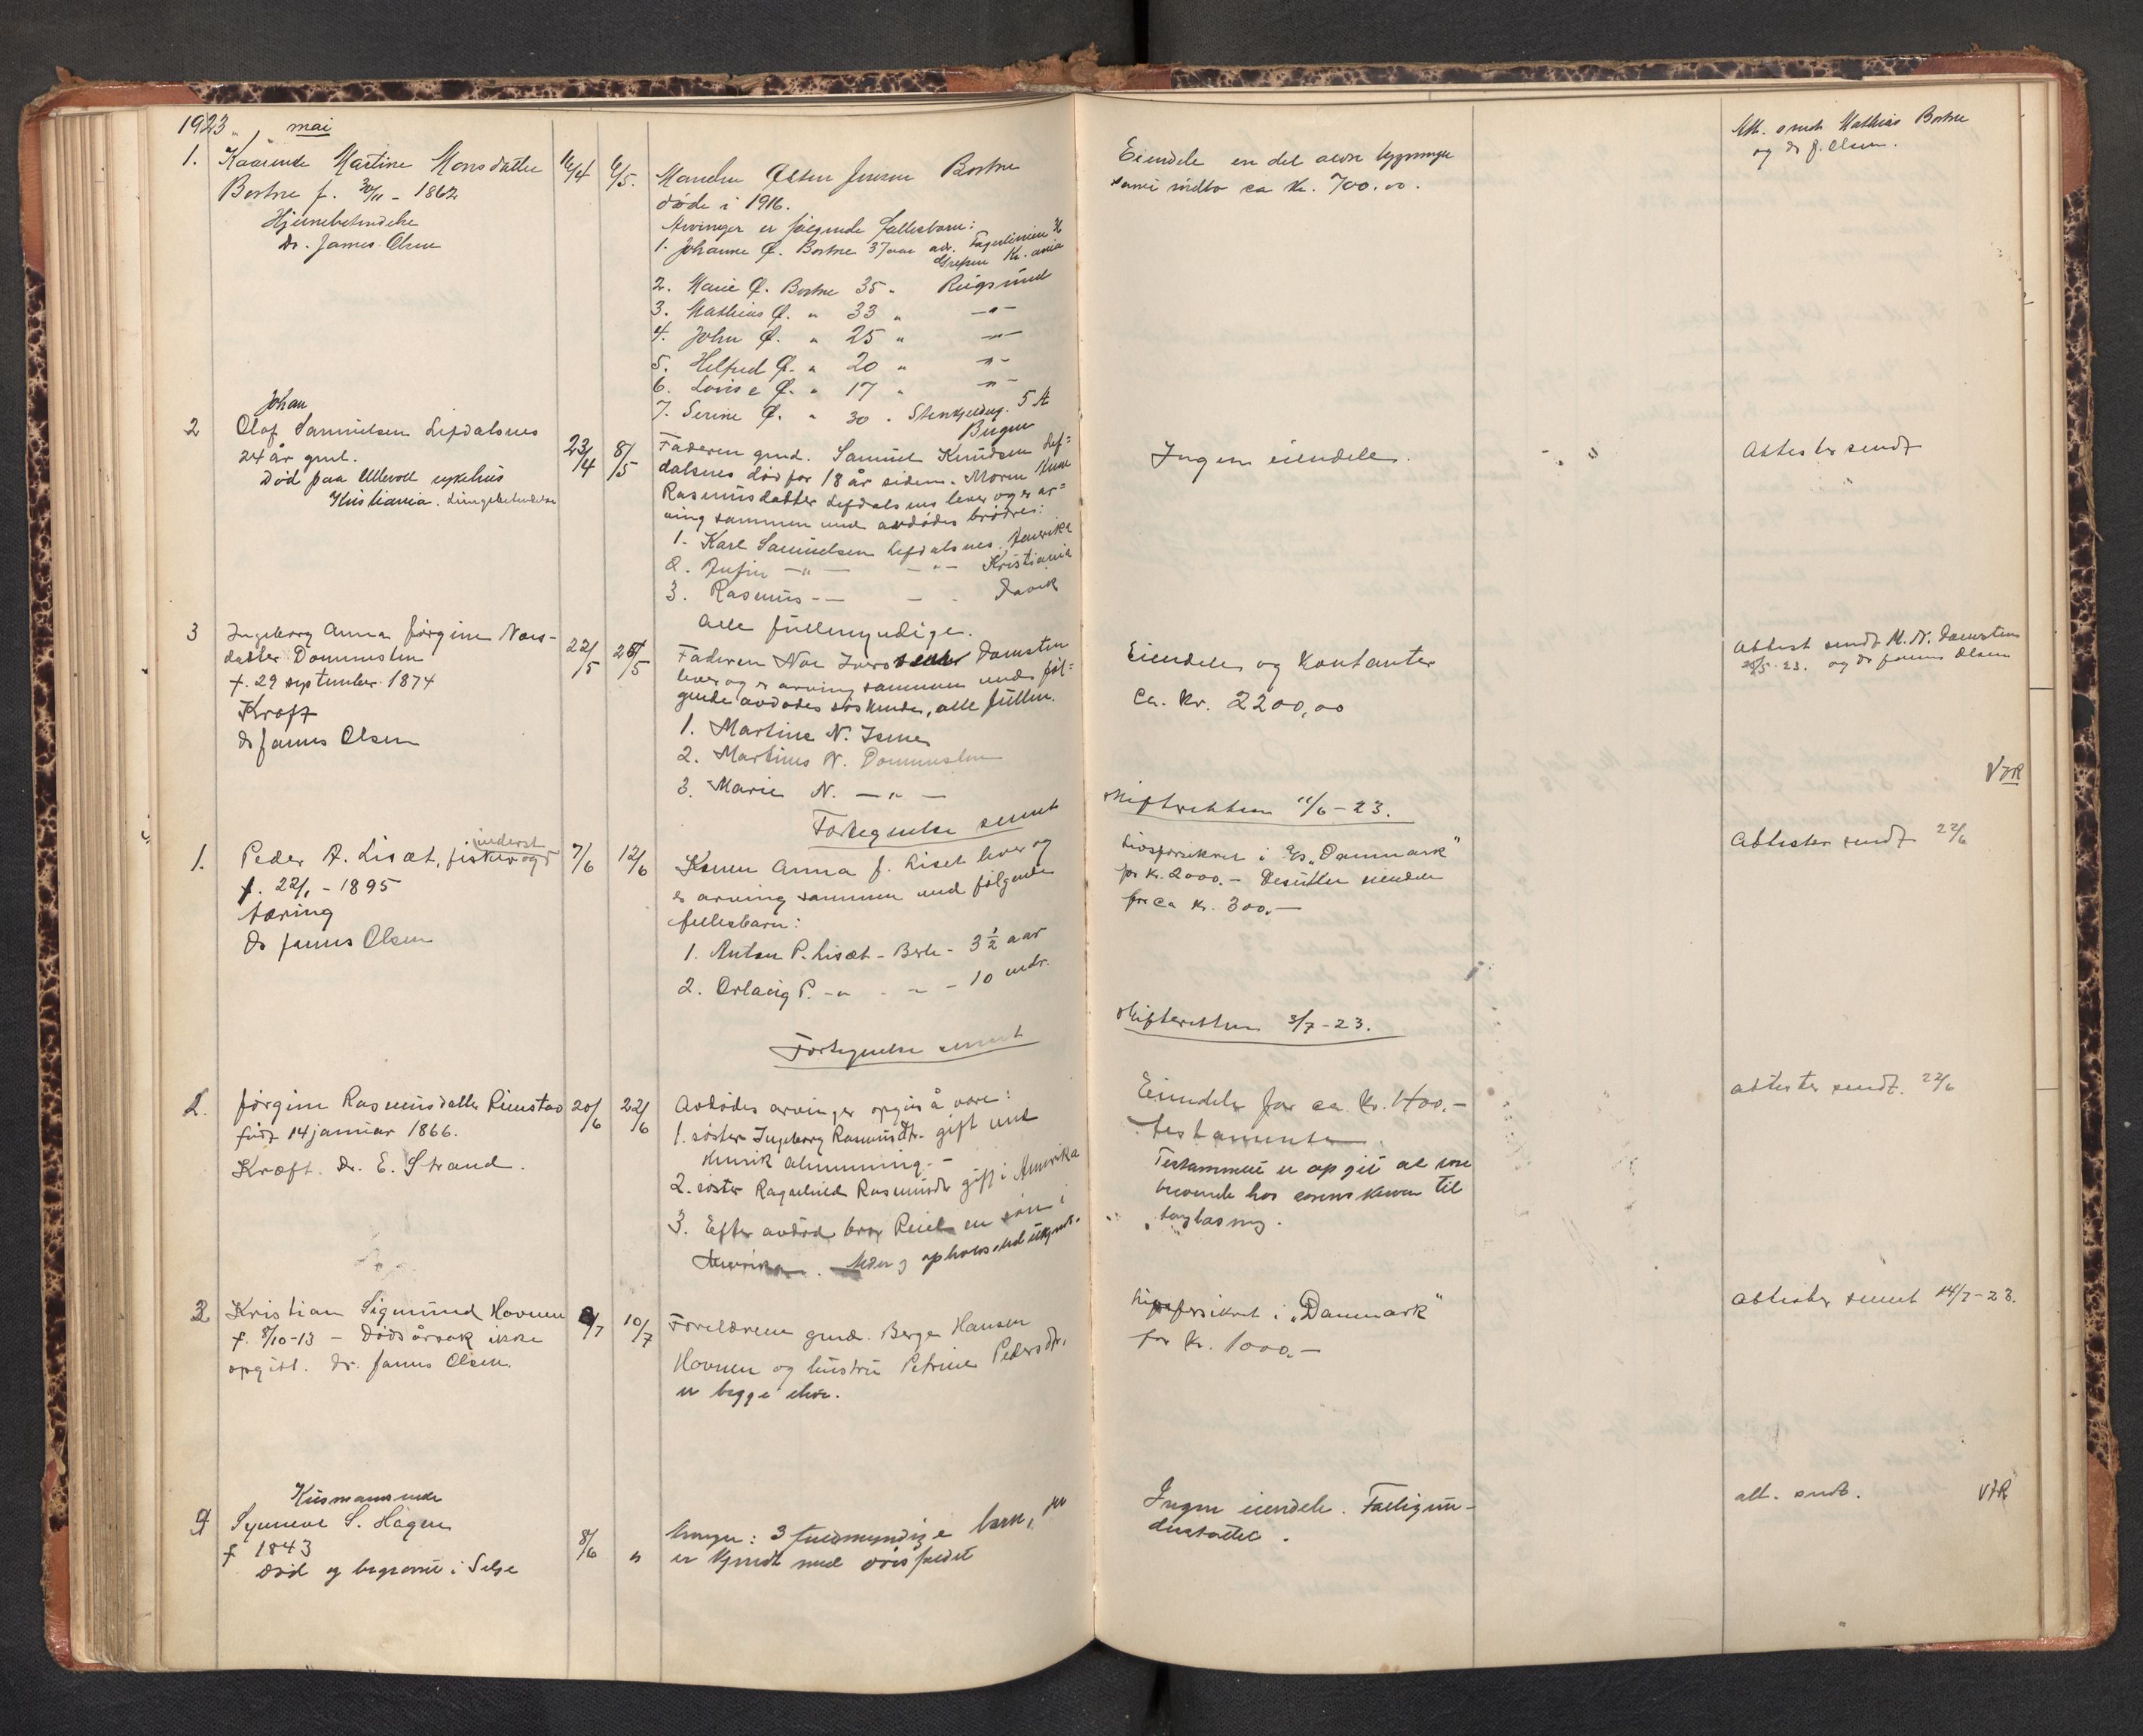 1923 mai
1. Kaarinde Martine Monsdatter 16/4 6/5.
Bortne f. 30/11 - 1862
Hjernebetendelse
Dr. James Olsen
Manden Østen Jensen Bortne
døde i 1916.
Arvinger er følgende fællesbarn:
1. Johanne Ø. Bortne 37 aar adr.
Grefsen Kr.ania
2. Marie Ø. Bortne 35 " Rugsund
3. Mathias Ø. " 33 " -"-
4. John Ø. " 25 " -"-
5. Helfred Ø. " 20 " -"-
6. Lovise Ø. " 17 " -"-
7. Serine Ø. " 30 " 5 A
Bergen
Eiendele en del ældre bygninger
samt indbo ca kr. 700.00.
Att. sendt Mathias Bortne
og dr J. Olsen.
Johan
2 Olaf Samuelsen Lefdalsnes 23/4 8/5
24 år gml.
Død paa Ullevoll sykehus
Kristiania. Lungebetendelse
Faderen gmd. Samuel Knudsen Lef=
dalsnes død for 18 år siden. Moren Anne
Rasmusdatter Lefdalsnes lever og er ar=
ving sammen med avdødes brødre:
1. Karl Samuelsen Lefdalsnes, Amerika
2. -"- -"- Kristiania
3. Rasmus -"- - Davik
Alle fullmyndige.
Ingen eiendele.
Attester sendt
3 Ingeborg Anna Jørgine Noes- 22/5 25/5
datter Dommesten
f. 29 september 1874
Kræft
dr James Olsen
Faderen Noe Domsten
lever og er arving sammen med føl=
gende avdødes søskende, alle fullm.
1. Martine N. Isene
2. Martinus N. Dommesten
3. Marie N. -"-
Fortegnelse sendt
Eiendele og kontanter
Ca. kr. 2200,00
Attest sendt M. N. Domsten
25/5-23. og dr James Olsen
VJR
skifteretten 11/6-23.
inderst
1. Peder A. Lisæt, fisker og 7/6 12/6
f. 22/1 - 1895
tæring
dr James Olsen
Konen Anna J. Liset lever og
er arving sammen med følgende
fællesbarn:
1. Anton P. Lisæt - Berle - 3 1/2 aar
2. Orlaug P. -"- - - 10 mdr.
Fortegnelse sendt
Livsforsikret i A/s "Danmark"
for kr. 2000.- Desuten eiendele
for ca kr. 300.-
Attester sendt 22/6
skifteretten 3/7-23.
2. Jørgine Rasmusdatter Rimstad 20/6 22/6
født 14 januar 1866.
Kræft. Dr. E. Strand.
Avdødes arvinger opgis å være:
1. søster Ingeborg Rasmusdtr. gift med
Henrik Almenning.-
2. søster Ragnhild Rasmusdtr gift i Amerika
3. Efter avdød bror en søn i
Amerika. Alder og opholdssted ukjendt.
Eiendele for ca. kr. 1400.-
testamente.
Testamente er opgit at være
beroende hos sorenskriveren til
tinglæsning.
attester sendt. 22/6
3 Kristian Sigmund Hovnen /7 10/7
f. 8/10-13 - dødsårsak ikke
opgitt. dr. James Olsen.
Forældrene gmd. Berge Hansen
Hovnen og hustru Petrine Pedersdtr.
er begge ilive.
Livsforsikret i "Danmark"
for kr. 1000.-
Attester sendt 14/7-23.
Husmandsenke
4 Synneve S. Hagen 8/6 "
f 1843
død og begravet i Selje
Arvinger: 3 fuldmyndige barn,
er kjendt med dødsfaldet
Ingen eiendele. Fattigun-
derstøttet.
att. sendt. VJR